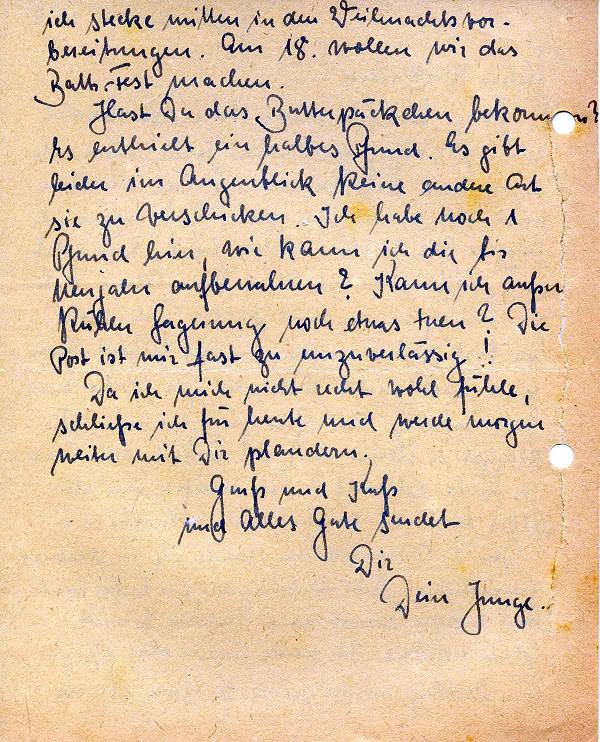 ich stecke mitten in den Weihnachtsvor-
bereitungen. Am 18. wollen wir das
Battr.-Fest machen.
Hast Du das Butterpäckchen bekommen?
Es enthielt ein halbes Pfund. Es gibt
leider im Augenblick keine andere Art
sie zu verschicken. Ich habe noch 1
Pfund hier, wie kann ich die bis
Neujahr aufbewahren? Kann ich außer
kühlen Lagerung noch etwas tuen? Die
Post ist mir fast zu unzuverlässig!
Da ich mich nicht recht wohl fühle,
schließe ich für heute und werde morgen
weiter mit Dir plaudern.
Gruß und Kuß
und alles Gute sendet
Dir
Dein Junge.